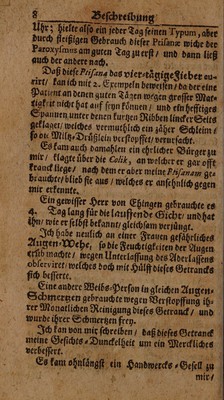 8 Beschreibung
Uhr; hielte also ein jeder Tag seinen Typum, aber
durch fleißigen Gebrauch dieser Ptisanæ wiche der
Paroxysmus am guten Tag zu erst / und dann ließ
auch der andere nach.
Daß diese Ptisana das vier-tägige Fieber cu-
rirt / kan ich mit 2. Exempeln beweisen / da der eine
Patient an denen guten Tägen wegen grosser Mat-
tigkeit nicht hat auf seyn können / und ein hefftiges
Spannen unter denen kurtzen Ribben lincker Seits
geklaget / welches vermuthlich ein zäher Schleim /
so die Miltz-Drüßlein verstopffte / verursacht.
Es kam auch damahlen ein ehrlicher Bürger zu
mir / klagte über die Colik, an welcher er gar offt
kranck lige / nach dem er aber meine Ptisanam ge-
brauchte / blieb sie aus / welches er annehmlich gegen
mir erkennte.
Ein gewisser Herr von Ehingen gebrauchte es
4. Tag lang für die lauffende Gicht / und hat
ihn / wie er selbst bekann / gleichsam verjüngt.
Ich habe neulich an einer Frauen gefährliches
Augen-Wehe, so die Feuchtigkeiten der Augen
erstb machte / wegen Unterlassung des Aderlassens
observiret / welches doch mit Hülff dieses Getrancks
sich besserte.
Eine andere Weibs-Person in gleichen Augen-
Schmertzen gebrauchte wegen Verstopffung ih-
rer Monatlichen Reinigung dieses Getranck / und
wurde ihrer Schmertzen frey.
Ich kan von mir schreiben / daß dieses Getranck
meine Gesichts-Dunckelheit um ein Merckliches
verbessert.
Es kam ohnlängst ein Handwercks-Gesell zu
mir /